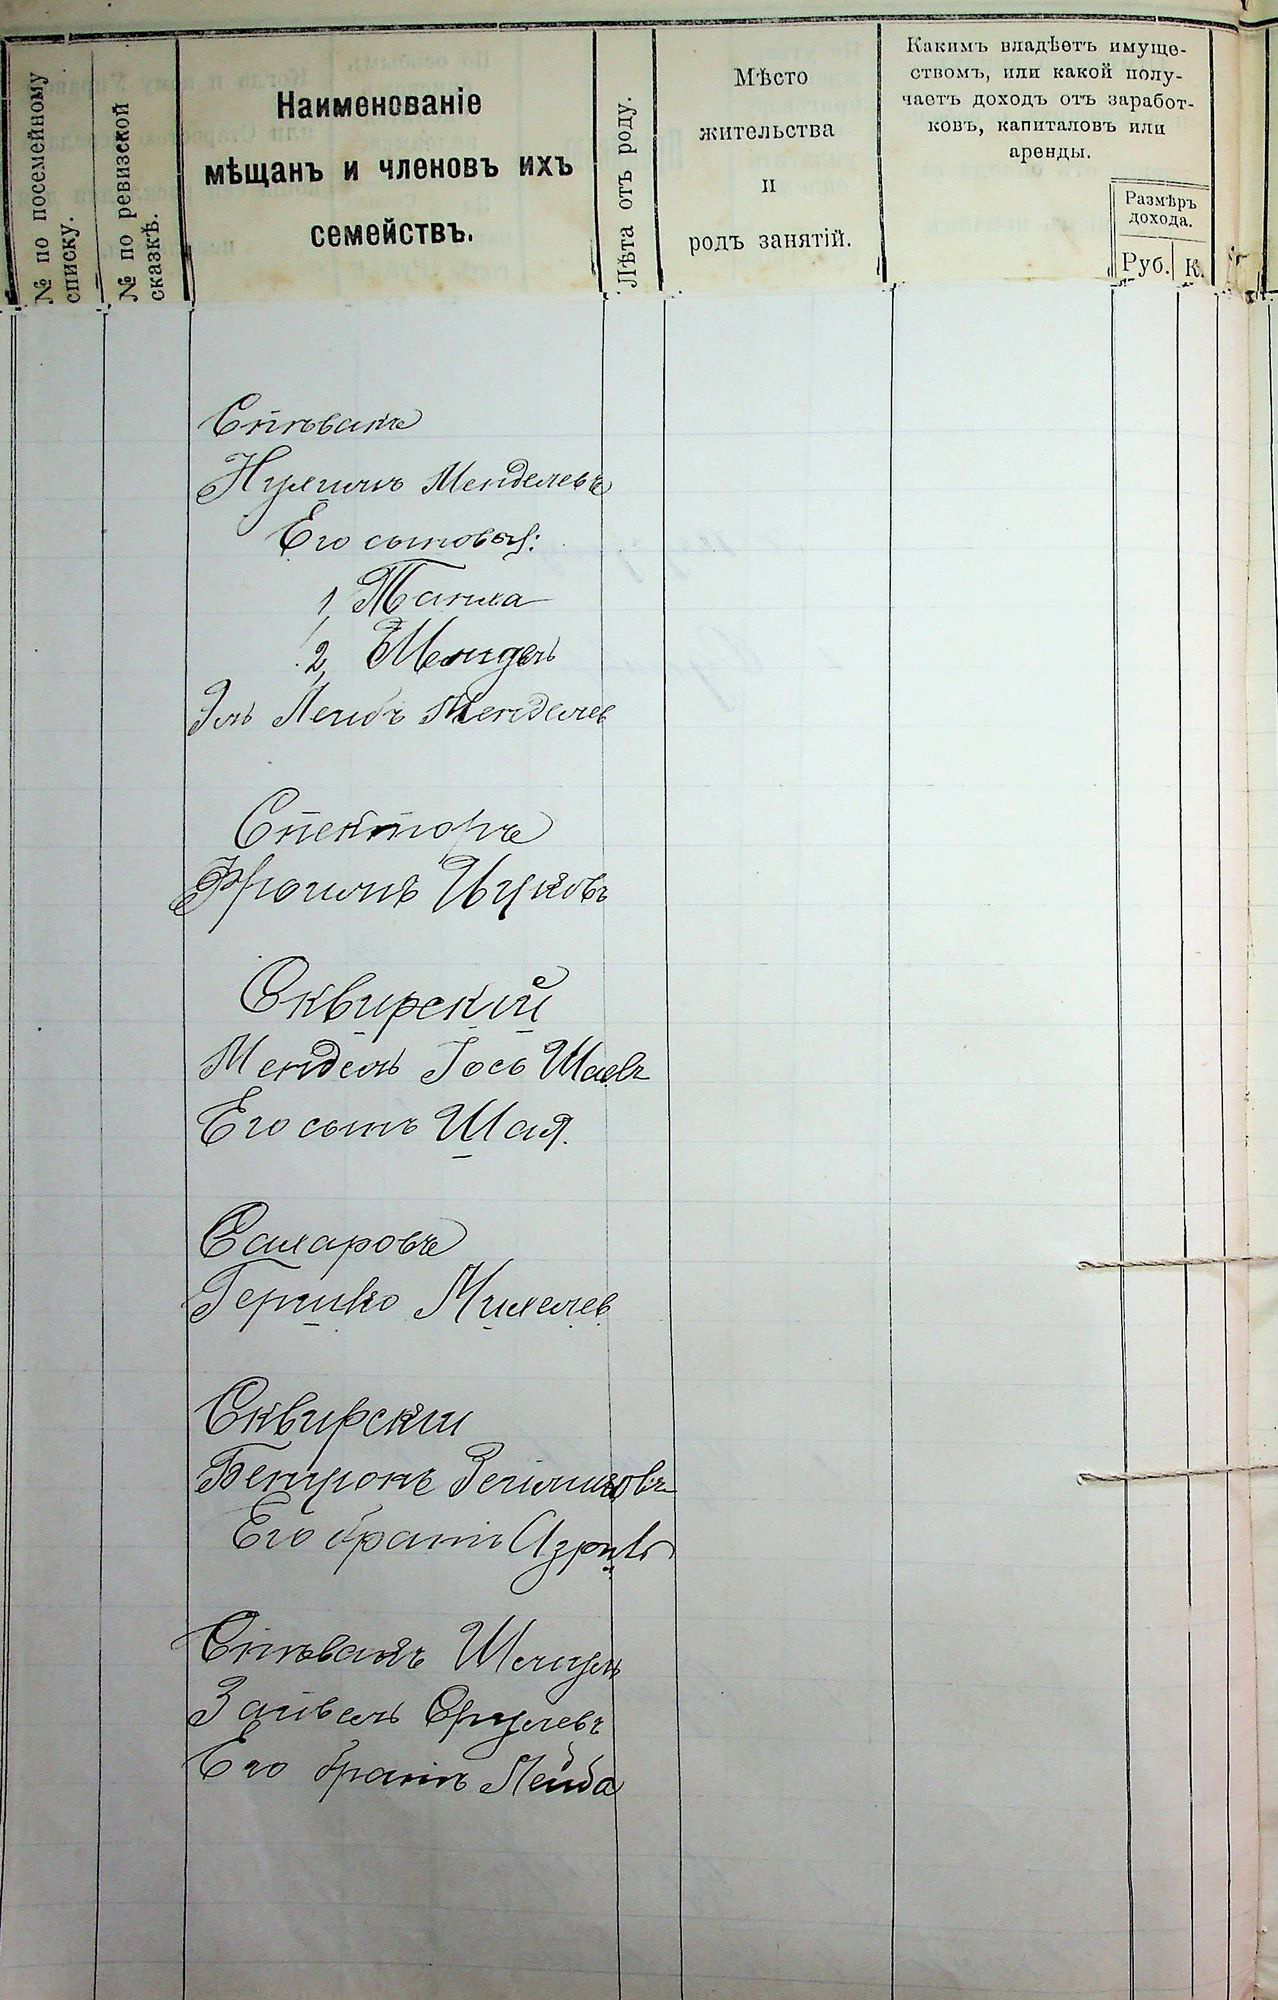 № по посемейному
списку.
№ по ревизской
сказкѣ.
Наименованіе
мѣщанъ и членовъ ихъ
семействъ.
Лѣта отъ роду.
Мѣсто
жительства
и
родъ занятій.
Какимъ владѣетъ имуще-
ствомъ, или какой полу-
чаетъ доходъ отъ заработ-
ковъ, капиталовъ или
аренды.
Размѣръ
дохода.
Руб.
К.
Спѣвакъ
Нухимъ Менделевъ
Его сыновья:
1,
2, Мендель
Эль Лейбъ Менделев
Спекторъ
Фроимъ Ицковъ
Сквирский
Мендель Іось Шаевъ
Его сынъ Шая.
Самаровъ
Гершко Михелев
Сквирскии
Бенционъ
Его братъ Азриль
Спѣвакъ
Зайвель Срулевъ
Его братъ Лейба